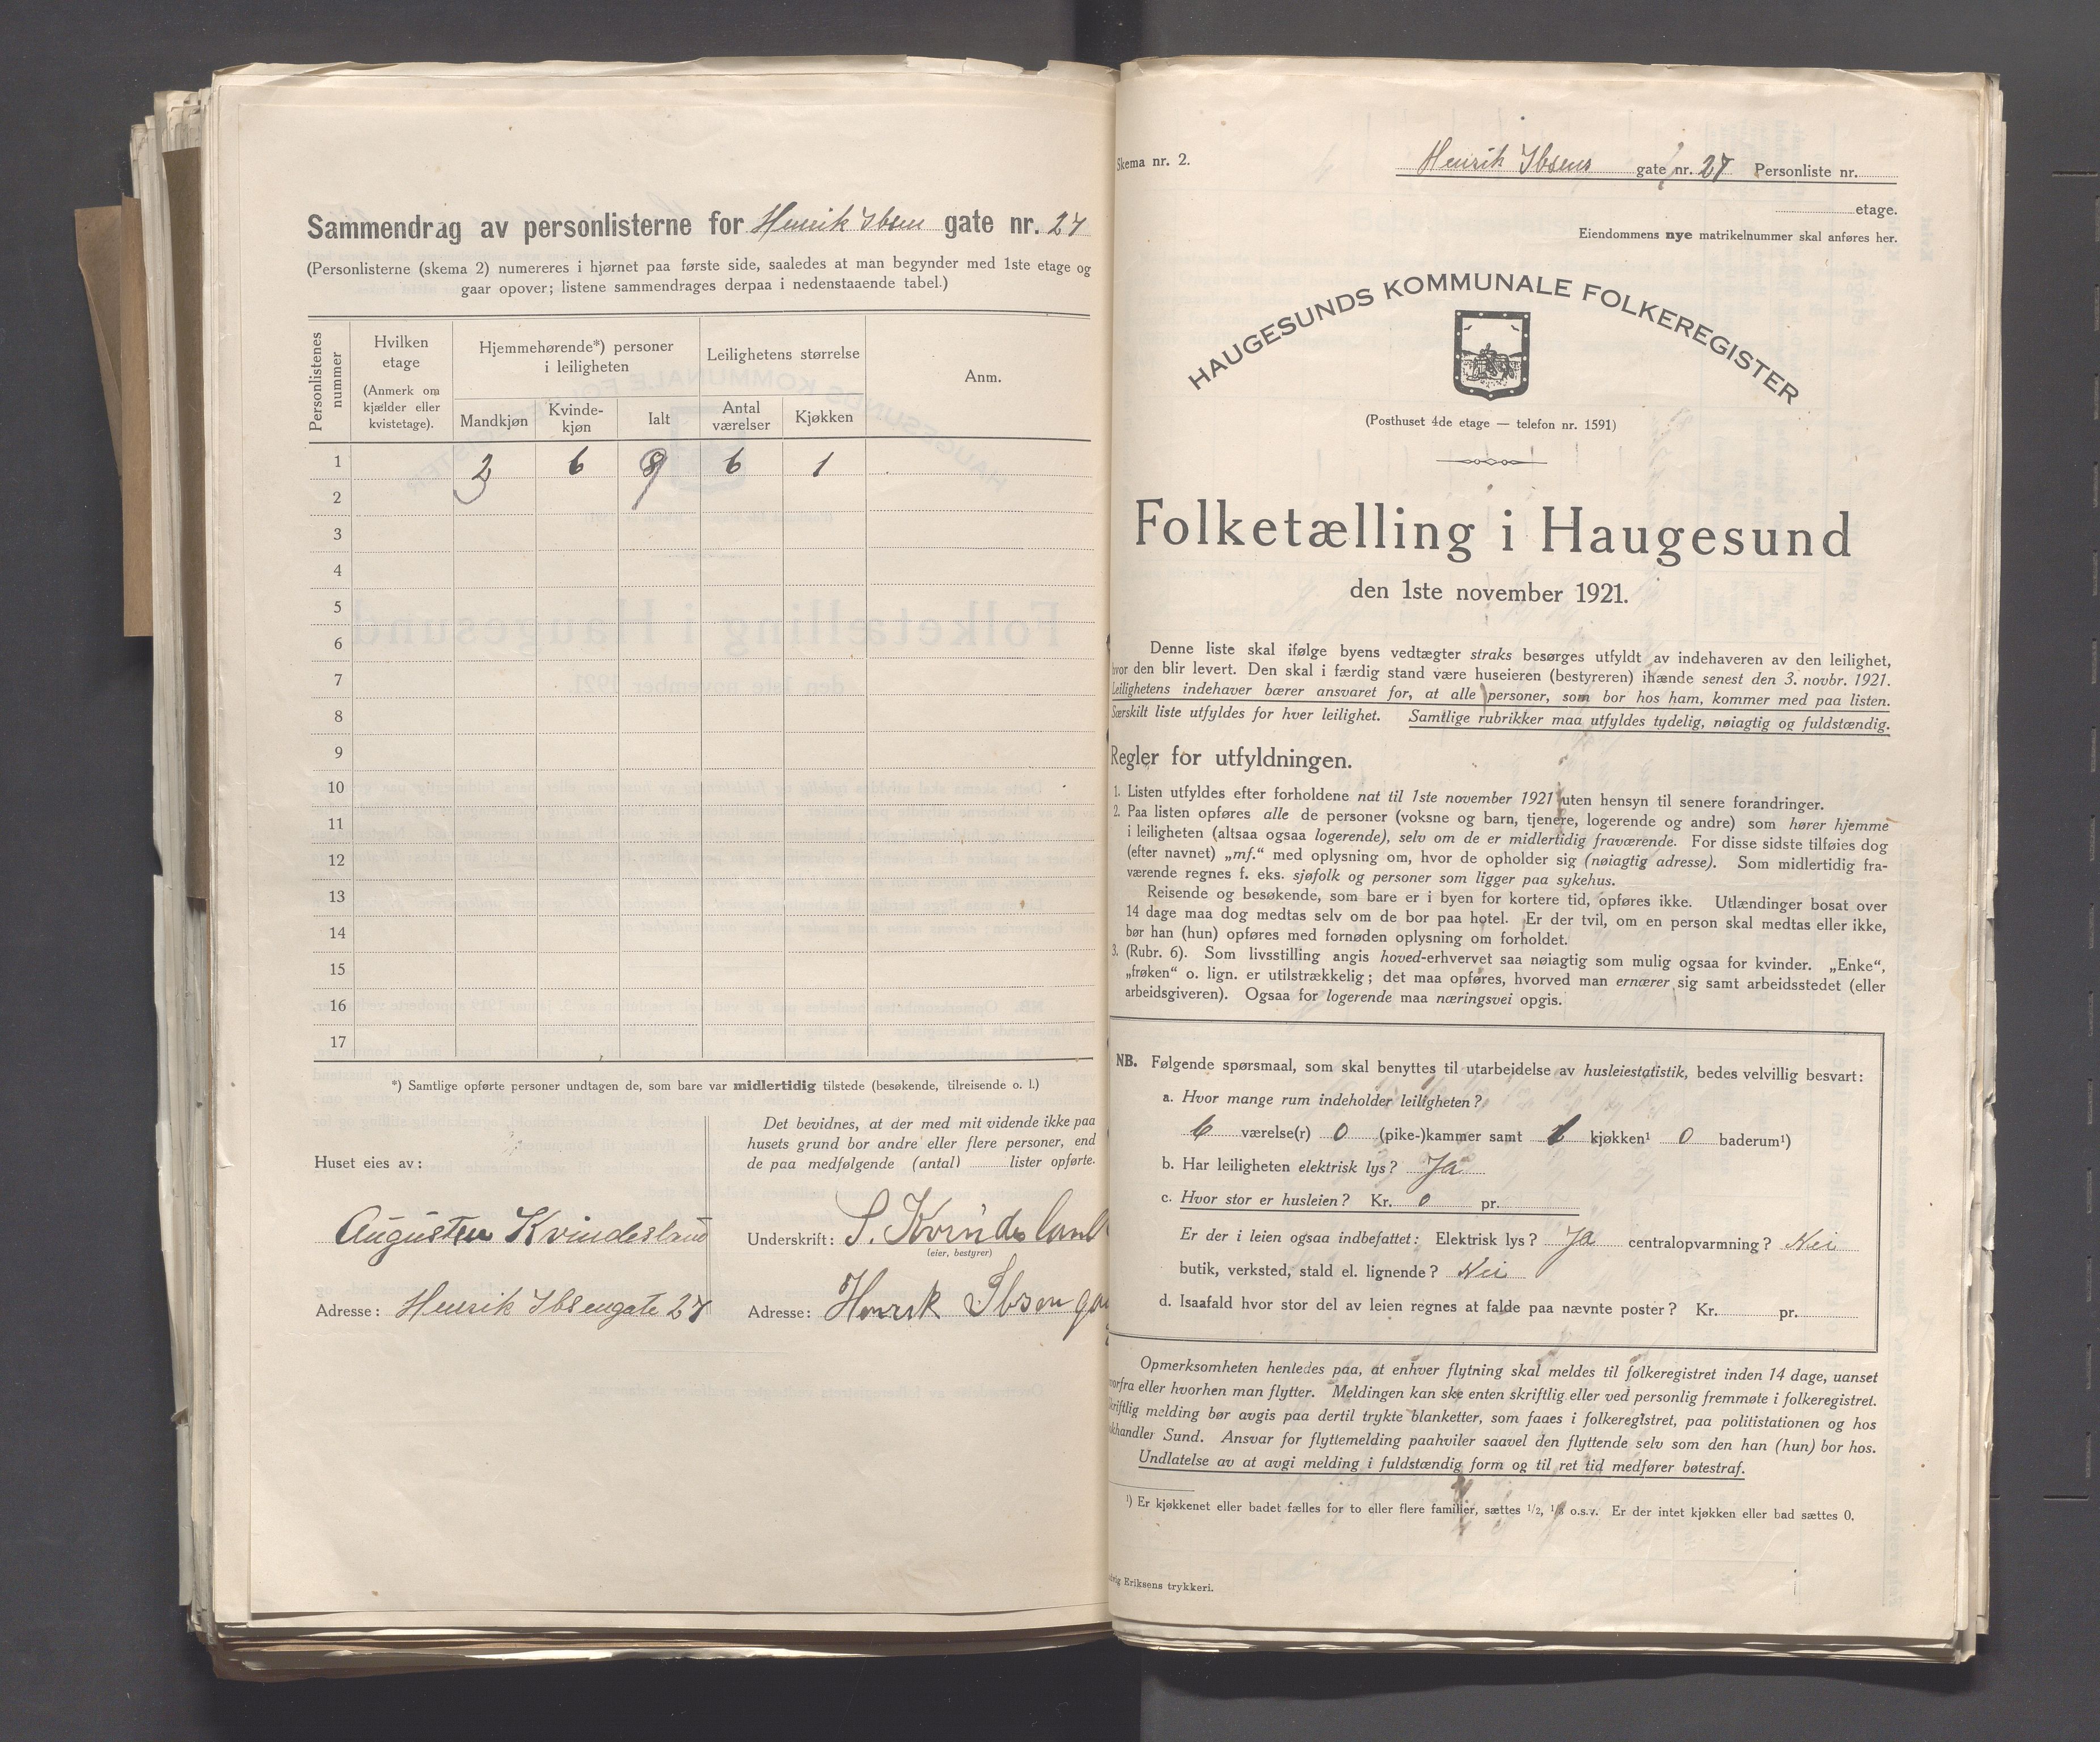 Sammendrag av personlisterne for Henrik Ibsen gate nr. 27
(Personlisterne (skema 2) numereres i hjørnet paa første side, saaledes at man begynder med 1ste etage og
gaar opover; listene sammendrages derpaa i nedenstaaende tabel.)
Personlistenes nummer
Hvilken etage
(Anmerk om kjælder eller kvistetage).
Hjemmehørende*) personer i leiligheten
Leilighetens størrelse
Anm.
Mandkjøn
Kvindekjøn
Ialt
Antal værelser
Kjøkken
1 3 6 9 6 1
2
3
4
5
6
7
8
9
10
11
12
13
14
15
16
17
*) Samtlige opførte personer undtagen de, som bare var midlertidig tilstede (besøkende, tilreisende o. l.)
Huset eies av:
Augusten Kvindesland
Adresse: Henrik Ibsengate 27
Det bevidnes, at der med mit vidende ikke paa
husets grund bor andre eller flere personer, end
de paa medfølgende (antal) lister opførte.
Underskrift: S. Kvindesland
(eier, bestyrer)
Adresse: Henrik Ibsen
Skema nr. 2.
Henrik Ibsens gate nr. 27 Personliste nr.
etage.
Eiendommens nye matrikelnummer skal anføres her.
HAUGESUNDS KOMMUNALE FOLKEREGISTER
(Posthuset 4de etage — telefon nr. 1591)
Folketælling i Haugesund
den 1ste november 1921.
Denne liste skal ifølge byens vedtægter straks besørges utfyldt av indehaveren av den leilighet,
hvor den blir levert. Den skal i færdig stand være huseieren (bestyreren) ihænde senest den 3. novbr. 1921.
Leilighetens indehaver bærer ansvaret for, at alle personer, som bor hos ham, kommer med paa listen.
Særskilt liste utfyldes for hver leilighet. Samtlige rubrikker maa utfyldes tydelig, nøiagtig og fuldstændig.
Regler for utfyldningen.
1. Listen utfyldes efter forholdene nat til 1ste november 1921 uten hensyn til senere forandringer.
2. Paa listen opføres alle de personer (voksne og barn, tjenere, logerende og andre) som hører hjemme
i leiligheten (altsaa ogsaa logerende), selv om de er midlertidig fraværende. For disse sidste tilføies dog
(efter navnet) „mf.“ med oplysning om, hvor de opholder sig (nøiagtig adresse). Som midlertidig fra-
værende regnes f. eks. sjøfolk og personer som ligger paa sykehus.
Reisende og besøkende, som bare er i byen for kortere tid, opføres ikke. Utlændinger bosat over
14 dage maa dog medtas selv om de bor paa hotel. Er der tvil, om en person skal medtas eller ikke,
bør han (hun) opføres med fornøden oplysning om forholdet.
3. (Rubr. 6). Som livsstilling angis hoved-erhvervet saa nøiagtig som mulig ogsaa for kvinder. „Enke“,
„frøken“ o. lign. er utilstrækkelig; det maa opføres, hvorved man ernærer sig samt arbeidsstedet (eller
arbeidsgiveren). Ogsaa for logerende maa næringsvei opgis.
NB. Følgende spørsmaal, som skal benyttes til utarbeidelse av husleiestatistik, bedes velvillig besvart:
a. Hvor mange rum indeholder leiligheten?
6 værelse(r) 0 (pike-)kammer samt 1 kjøkken¹ 0 baderum¹)
b. Har leiligheten elektrisk lys? Ja
c. Hvor stor er husleien? Kr. 0 pr.
Er der i leien ogsaa indbefattet: Elektrisk lys? Ja centralopvarmning? Nei
butik, verksted, stald el. lignende? Nei
d. Isaafald hvor stor del av leien regnes at falde paa nævnte poster? Kr. pr.
Opmerksomheten henledes paa, at enhver flytning skal meldes til folkeregistret inden 14 dage, uanset
vorfra eller hvorhen man flytter. Meldingen kan ske enten skriftlig eller ved personlig fremmøte i folkeregistret.
kriftlig melding bør avgis paa dertil trykte blanketter, som faaes i folkeregistret, paa politistationen og hos
khandler Sund. Ansvar for flyttemelding paahviler saavel den flyttende selv som den han (hun) bor hos.
Undlatelse av at avgi melding i fuldstændig form og til ret tid medfører bøtestraf.
¹) Er kjøkkenet eller badet fælles for to eller flere familier, sættes 1/2, 1/3 o.s.v. Er der intet kjøkken eller bad sættes 0.
Eriksens trykkeri.